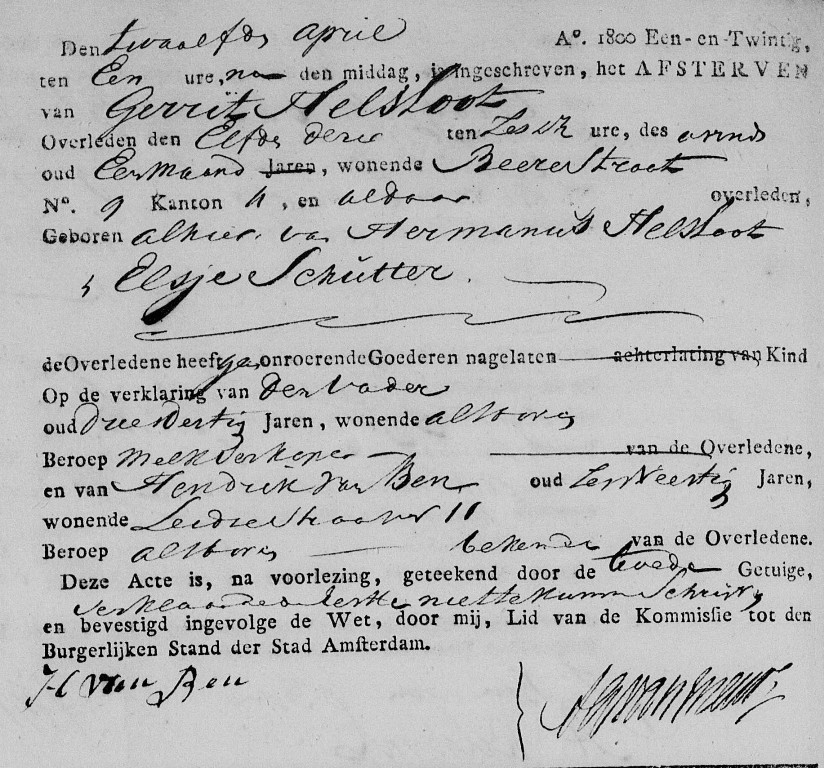 Den twaalfde april Aº. 1800 Een-en-Twintig,
ten Een ure, na den middag, is ingeschreven, het AFSTERVEN
van Gerrit Helsloot
Overleden den Elfde dezer ten Zes ure, des avonds
oud Een maand Jaren, wonende Beerestraat
Nº. 9 Kanton 4, en aldaar overleden,
Geboren alhier van Hermanus Helsloot
Elsje Schutter.
de Overledene heeft onroerende Goederen nagelaten achterlating van Kind
Op de verklaring van den Vader
oud Drie Dertig Jaren, wonende alsboven
Beroep melkverkoper van de Overledene,
en van Hendrik van Ben oud Zes Veertig Jaren,
wonende Leidsestraat 11
Beroep alsboven bekende van de Overledene.
Deze Acte is, na voorlezing, geteekend door de tweede Getuige,
verklarende eerste niet te kunnen Schrijven
en bevestigd ingevolge de Wet, door mij, Lid van de Kommissie tot den
Burgerlijken Stand der Stad Amsterdam.
H van Ben